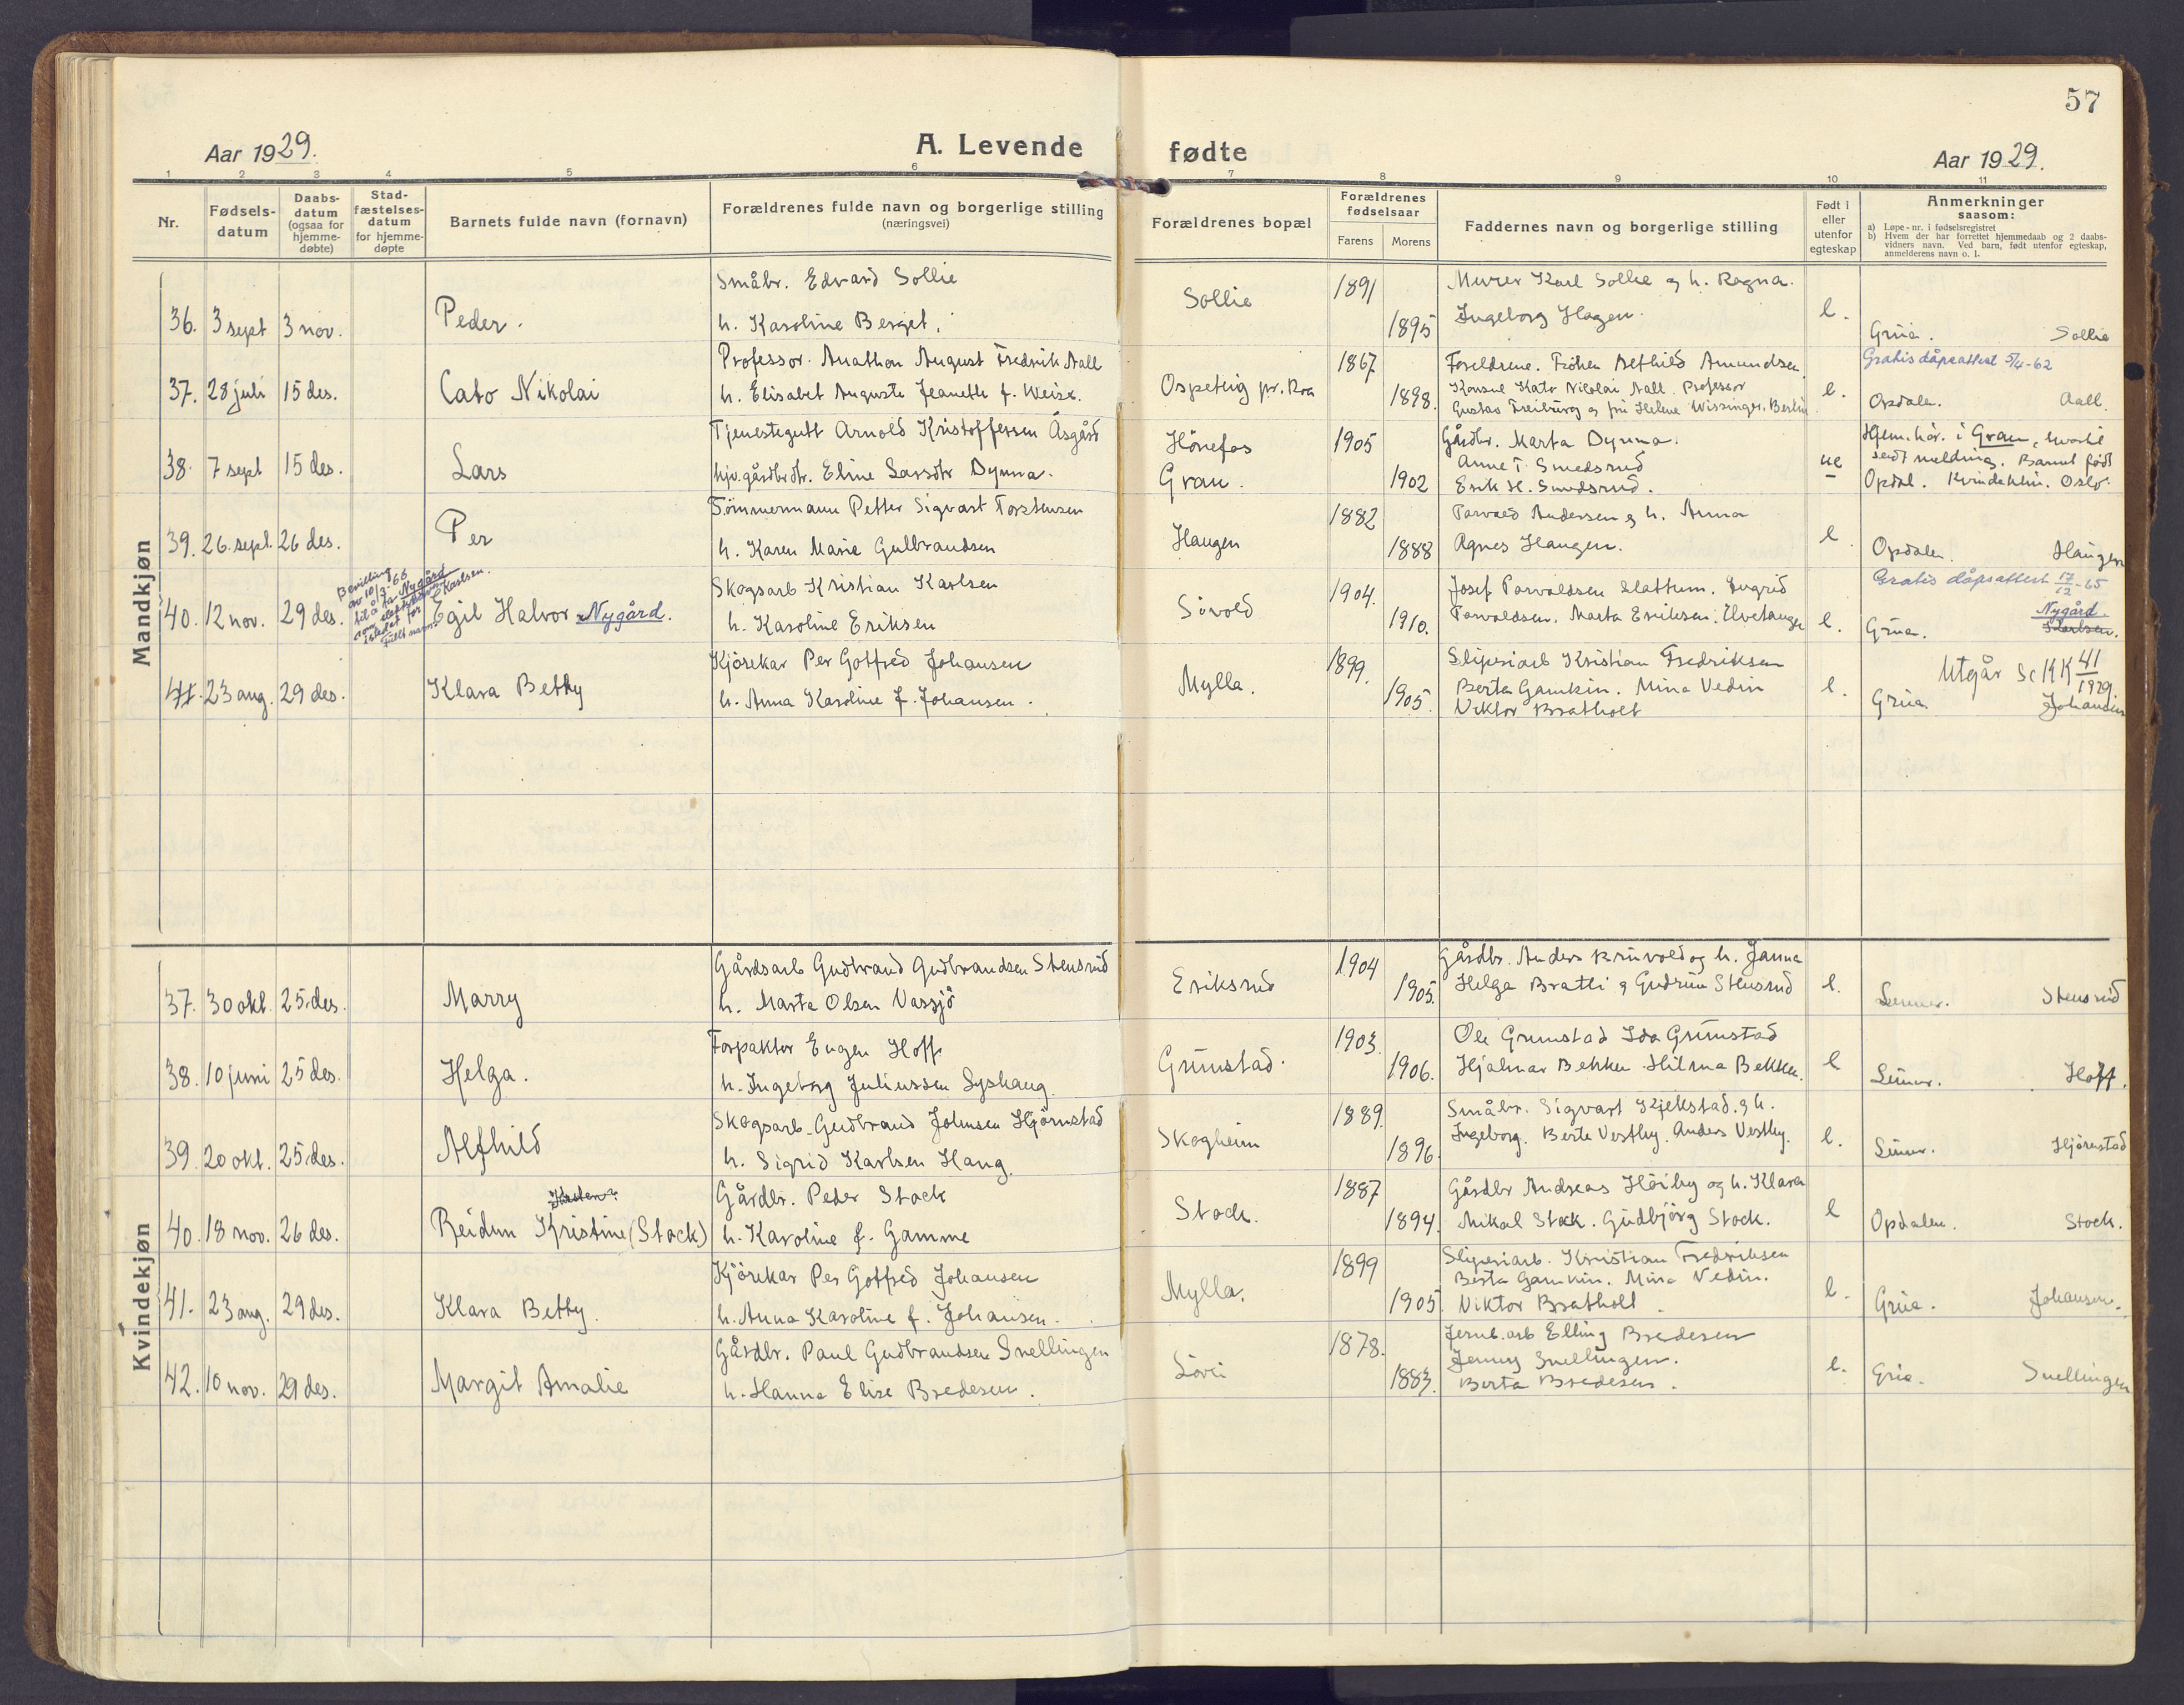 57
Aar 1929.
A. Levende fødte
Aar 1929.
1 2 3 4 5 6 7 8 9 10 11
Nr.
Fødsels-
datum
Daabs-
datum
(ogsaa for
hjemme-
døbte)
Stad-
fæstelses-
datum
for hjemme-
døpte
Barnets fulde navn (fornavn)
Forældrenes fulde navn og borgerlige stilling
(næringsvei)
Forældrenes bopæl
Forældrenes
fødselsaar
Farens Morens
Faddernes navn og borgerlige stilling
Født i
eller
utenfor
egteskap
Anmerkninger
saasom:
a) Løpe-nr. i fødselsregistret
b) Hvem der har forrettet hjemmedaab og 2 daabs-
vidners navn. Ved barn, født utenfor egteskap,
anmelderens navn o. l.
Mandkjøn
36. 3 sept 3 nov. Peder.
Småbr. Edvard Sollie
h. Karoline Berget.
Sollie 1891 1895
Murer Karl Sollie og h. Ragna.
Ingeborg Hagen.
e. Grua. Sollie
37. 28 juli 15 des. Cato Nikolai
Professor. Anathon August Fredrik Aall
h. Elisabet Auguste Jeanette f. Weise.
Ospeteig pr. Roa 1867 1898.
Foreldrene. Frøken Alfhild Amundsen
Konsul Kato Nikolai Aall. Professor
Gustav Freiburg og fru Helene Wissinger. Berlin
e. Gratis dåpsattest 5/4-62
Opdalen. Aall.
38. 7 sept 15 des. Lars
Tjenestegutt Arnold Kristoffersen Åsgård
hjv. gårdbrdtr. Eline Larsdtr Dynna.
Hönefos
Gran. 1905 1902
Gårdbr. Marta Dynna.
Anne T. Smedsrud
Erik H. Smedsrud.
ue
Hjem.hör. i Gran, hvortil
sendt melding. Barnet født
Opdal. Kvindeklin. Oslo.
39. 26. sept. 26 des. Per
Tömmermann Petter Sigvart Torstensen
h. Karen Marie Gulbrandsen
Haugen 1882 1888
Torvald Andersen og h. Anna
Agnes Haugen.
e. Opdalen Haugen
40. 12 nov. 29 des.
Bevilling
av 10/3-66
til å ta Nygård
som slektsnavn
istedet for Karlsen.
Fullt navn:
Egil Halvor Nygård.
Skogsarb Kristian Karlsen
h. Karoline Eriksen
Sivold 1904. 1910.
Josef Torvaldsen Slattum. Ingrid
Torvaldsen. Marta Eriksen. Elvetangen
e. Gratis dåpsattest 17/12-65
Nygård.
Grua. Karlsen.
41. 23 aug. 29 des. Klara Betty
Kjörekar Per Gotfred Johansen
h. Anna Karoline f. Johansen.
Mylla. 1899. 1905.
Sliperiarb Kristian Fredriksen
Berta Gamkin. Mina Vedin
Viktor Bratholt
e. Utgår se KK 41/1929.
Grua Johansen
Kvindekjøn
37. 30 okt. 25 des. Marry
Gårdsarb Gudbrand Gudbrandsen Stensrud
h. Marta Olsen Vassjö
Eriksrud 1904 1905.
Gårdbr. Anders Kruvold og h. Janna
Helga Bratli og Gudrun Stensrud
e. Lunner. Stensrud
38. 10 juni 25 des. Helga.
Forpakter Eugen Hoff
h. Ingeborg Juliussen Lyshaug.
Grumstad. 1903. 1906.
Ole Grumstad Ida Grumstad
Hjalmar Bekken Hilma Bekken.
e Lunner. Hoff.
39. 20 okt. 25 des. Alfhild
Skogsarb. Gudbrand Johnsen Hjörnstad
h. Sigrid Karlsen Haug.
Skogheim 1889. 1896.
Småbr. Sigvart Kjekstad. og h.
Ingeborg. Berte Vestby. Anders Vestby.
e. Lunner. Hjörnstad
40. 18 nov. 26 des. Reidun Kristine (Stock)
Gårdbr. Peder Stock
h. Karoline f. Gamme
Stock. 1887 1894.
Gårdbr Andreas Höiby og h. Klara
Mikal Stock. Gudbjörg Stock.
e Opdalen. Stock.
41. 23 aug. 29 des. Klara Betty.
Kjörekar Per Gotfred Johansen
h. Anna Karoline f. Johansen.
Mylla. 1899 1905.
Sliperiarb. Kristian Fredriksen
Berta Gamkin. Mina Vedin.
Viktor Bratholt.
e. Grua. Johansen.
42. 10 nov. 29 des. Margit Amalie
Gårdbr. Paul Gudbrandsen Snellingen
h. Hanna Elise Bredesen.
1878. 1883.
Jernb. arb Elling Bredesen
Jenny Snellingen.
Berta Bredesen.
e. Grua. Snellingen